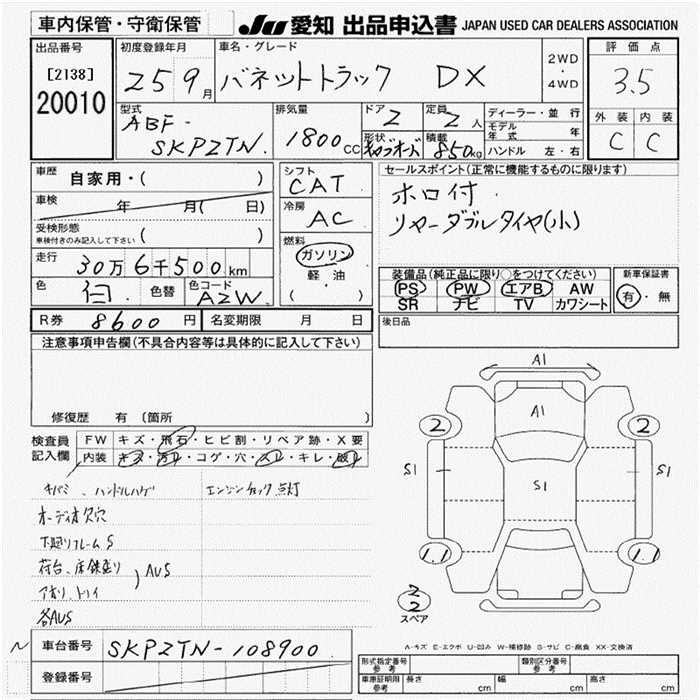 車内保管・守衛保管
JU 愛知 出品申込書 JAPAN USED CAR DEALERS ASSOCIATION
出品番号 初度登録年月 車名・グレード 評価点
[2138] 25 9月 バネットトラック DX 2WD・4WD 3.5
20010
型式 排気量 ドア 2 定員 2人 ディーラー・並行 外装 内装
ABF- モデル年式 年 C C
SKP2TN 1800cc 形状 積載 850kg ハンドル 左・右
車歴 自家用・( ) シフト CAT セールスポイント(正常に機能するものに限ります)
車検 年 月( 日) 冷房 AC ホロ付
受検形態 ( ) リヤーダブルタイヤ(小)
車検付きのみ記入して下さい
燃料 ガソリン
走行 30万6千500km 軽・油
( )
色 白 色替 色コード AZW
装備品(純正品に限り○をつけてください) 新車保証書
PS PW エアB AW 有・無
SR ナビ TV カワシート
R券 8600円 名変期限 月 日 後日品
注意事項申告欄(不具合内容等は具体的に記入して下さい)
修復歴 有 〔箇所 〕
検査員 FW キズ・飛石・ヒビ割・リペア跡・X要
記入欄 内装 キズ・汚れ・コゲ・穴・スレ・キレ・破れ
ハンドルハゲ エンジンチェック点灯
オーディオ欠穴
下廻りフレームS
荷台、床錆廻り
AUS
各AUS
A1
A1
2 2
S1 S1 S1
1.1 1.1
2
2
スペア
A-キズ E-エクボ U-凹み W-補修跡 S-サビ C-腐食 XX-交換済
N 車台番号 SKP2TN-108900
登録番号
形式指定番号 参考 類別区分番号 参考
車庫証明 参考 長さ cm 幅 cm 高さ cm